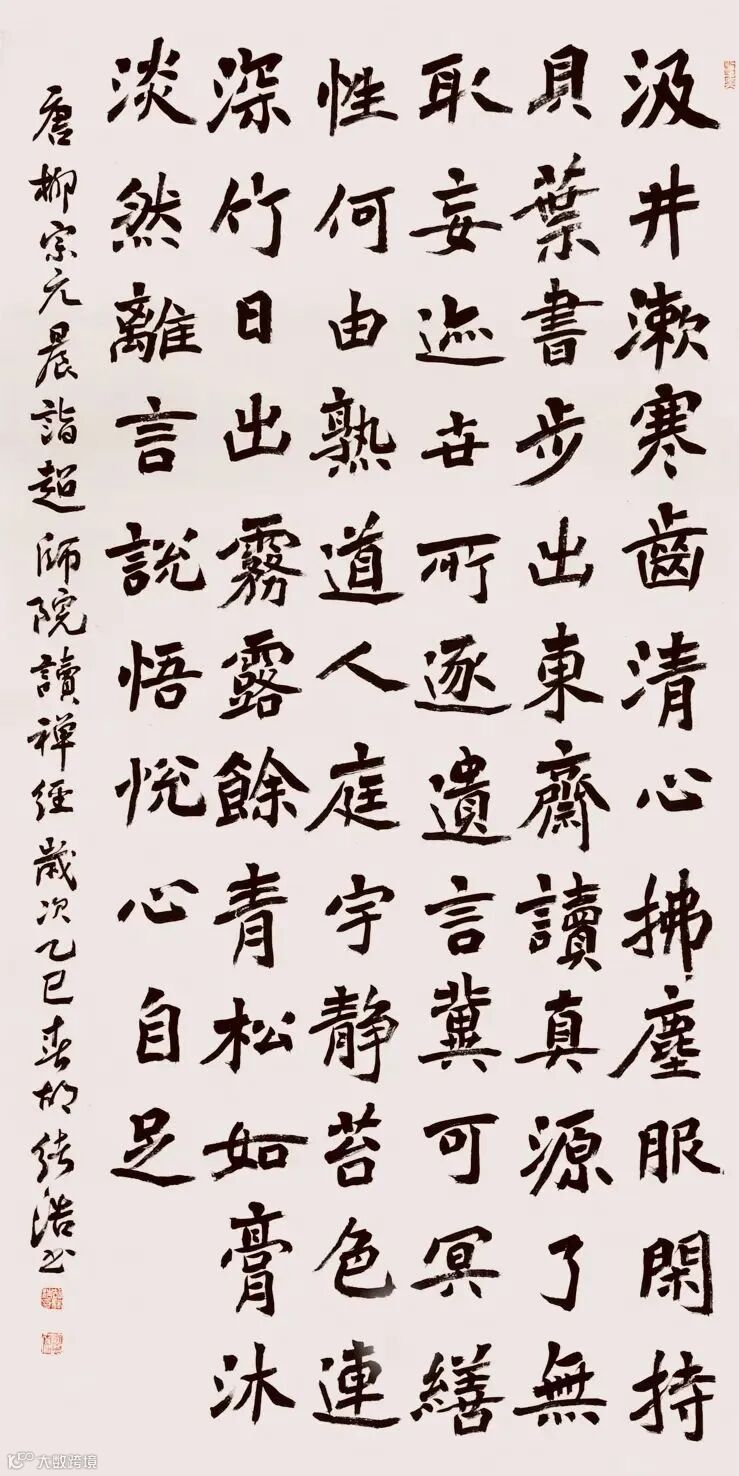 汲井漱寒齒清心拂塵服閑持
貝葉書步出東齋讀真源了無
取妄迹世所逐遺言冀可冥繕
性何由熟道人庭宇静苔色連
深竹日出霧露餘青松如膏沐
淡然離言説悟悦心自足
唐柳宗元晨詣超師院讀禅經歲次乙巳春胡浩书
大数跨境